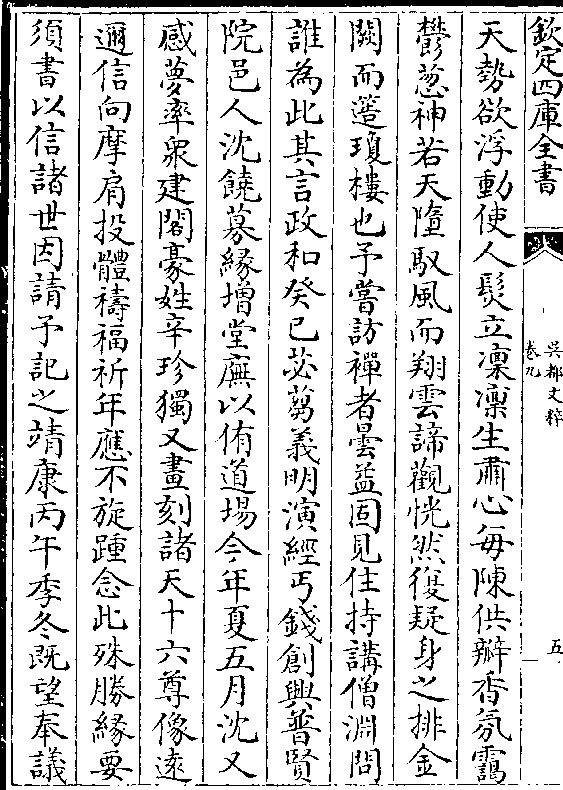 欽定四庫全書
吳都文粹
卷九
五
天勢欲浮動使人髮立凜凜生肅心毎陳供瓣香氛靄
鬱葱神若天墮馭風而翔雲諦觀恍然復疑身之排金
闕而簉瓊樓也予嘗訪禪者曇益固見住持講僧淵問
誰為此其言政和癸巳苾蒭義明演經丐錢創興普賢
院邑人沈饒募緣增堂廡以侑道場今年夏五月沈又
感夢率衆建閣豪姓辛珍獨又畫刻諸天十六尊像遠
邇信向摩肩投體禱福祈年應不旋踵念此殊勝緣要
須書以信諸世因請予記之靖康丙午季冬既望奉議